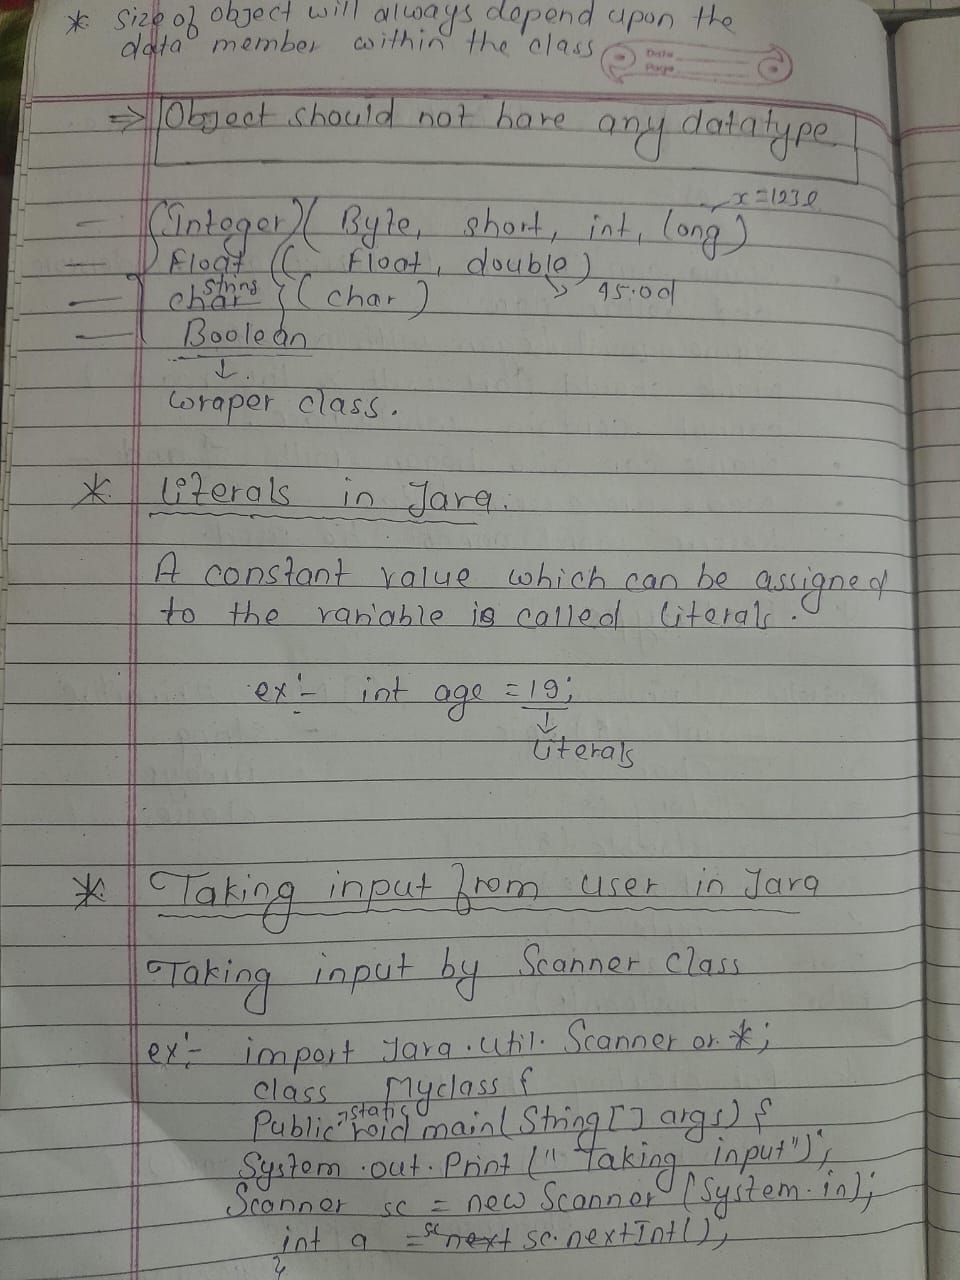 * size of object will always depend upon the
data member within the class
Date
Page
⇒ Object should not have any datatype
x=123l
— (Integer) ( Byte, short, int, long)
— Float (( Float, double)
— char string (char) ↘ 45.0d
— Boolean
↓
wraper class.
* literals in Java.
A constant value which can be assigned
to the variable is called literals.
ex:- int age = 19;
↓
literals
* Taking input from user in Java
Taking input by Scanner class
ex:- import Java.util.Scanner or *;
class Myclass {
Public static void main(String[] args) {
System.out.Print("Taking input");
Scanner sc = new Scanner (System.in);
int a = sc next sc.nextInt();
}